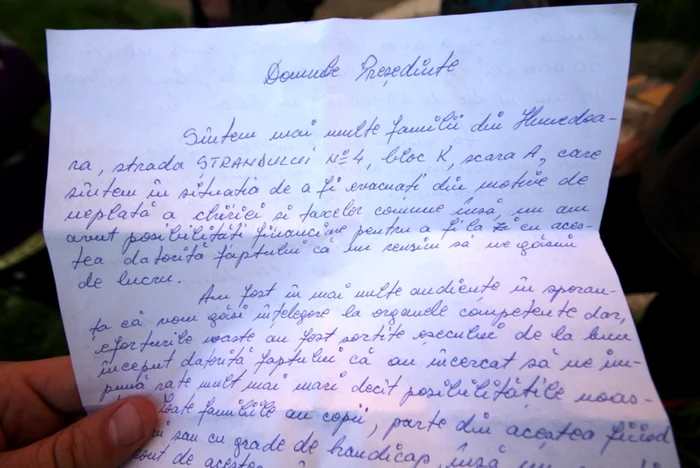 Domnule Președinte
Sîntem mai multe familii din Hunedoa-
ra, strada ȘTRANDULUI Nº 4, bloc K, scara A, care
sîntem în situatia de a fi evacuați din motive de
neplată a chiriei si taxelor comune însă, nu am
avut posibilități financiare pentru a fi la zi cu aces-
tea datorită faptului că nu reusim să ne găsim
de lucru.
Am fost în mai multe audiente în speran-
ța că vom găsi înțelegere la organele competente dar,
eforturile noastre au fost sortite eșecului de la bun
început datorită faptului că au încercat să ne im-
pună rate mult mai mari decît posibilitățile noas-
toate familiile au copii, parte din aceștea fiind
sau cu grade de handicap, însă
cont de acestea